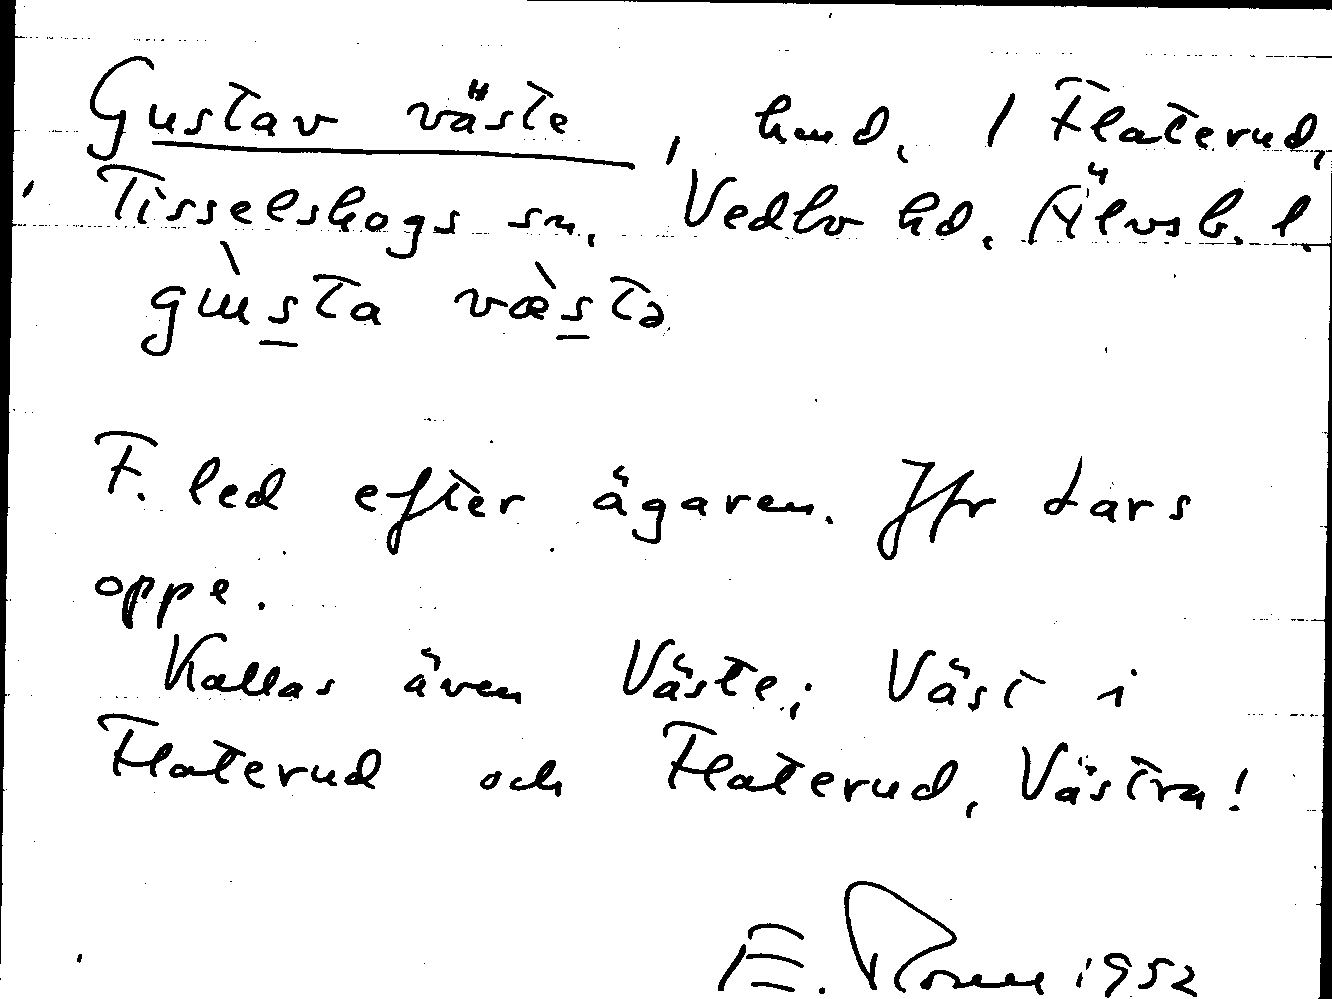 Gustav väste, hmd. 1 Flaterud,
Tisselskogs sn, Vedbo hd. Älvsb. l.
gùsta væ̀stə
F. led efter ägaren. Jfr Lars
oppe.
Kallas även Väste; Väst i
Flaterud och Flaterud, Västra!
E. 1952